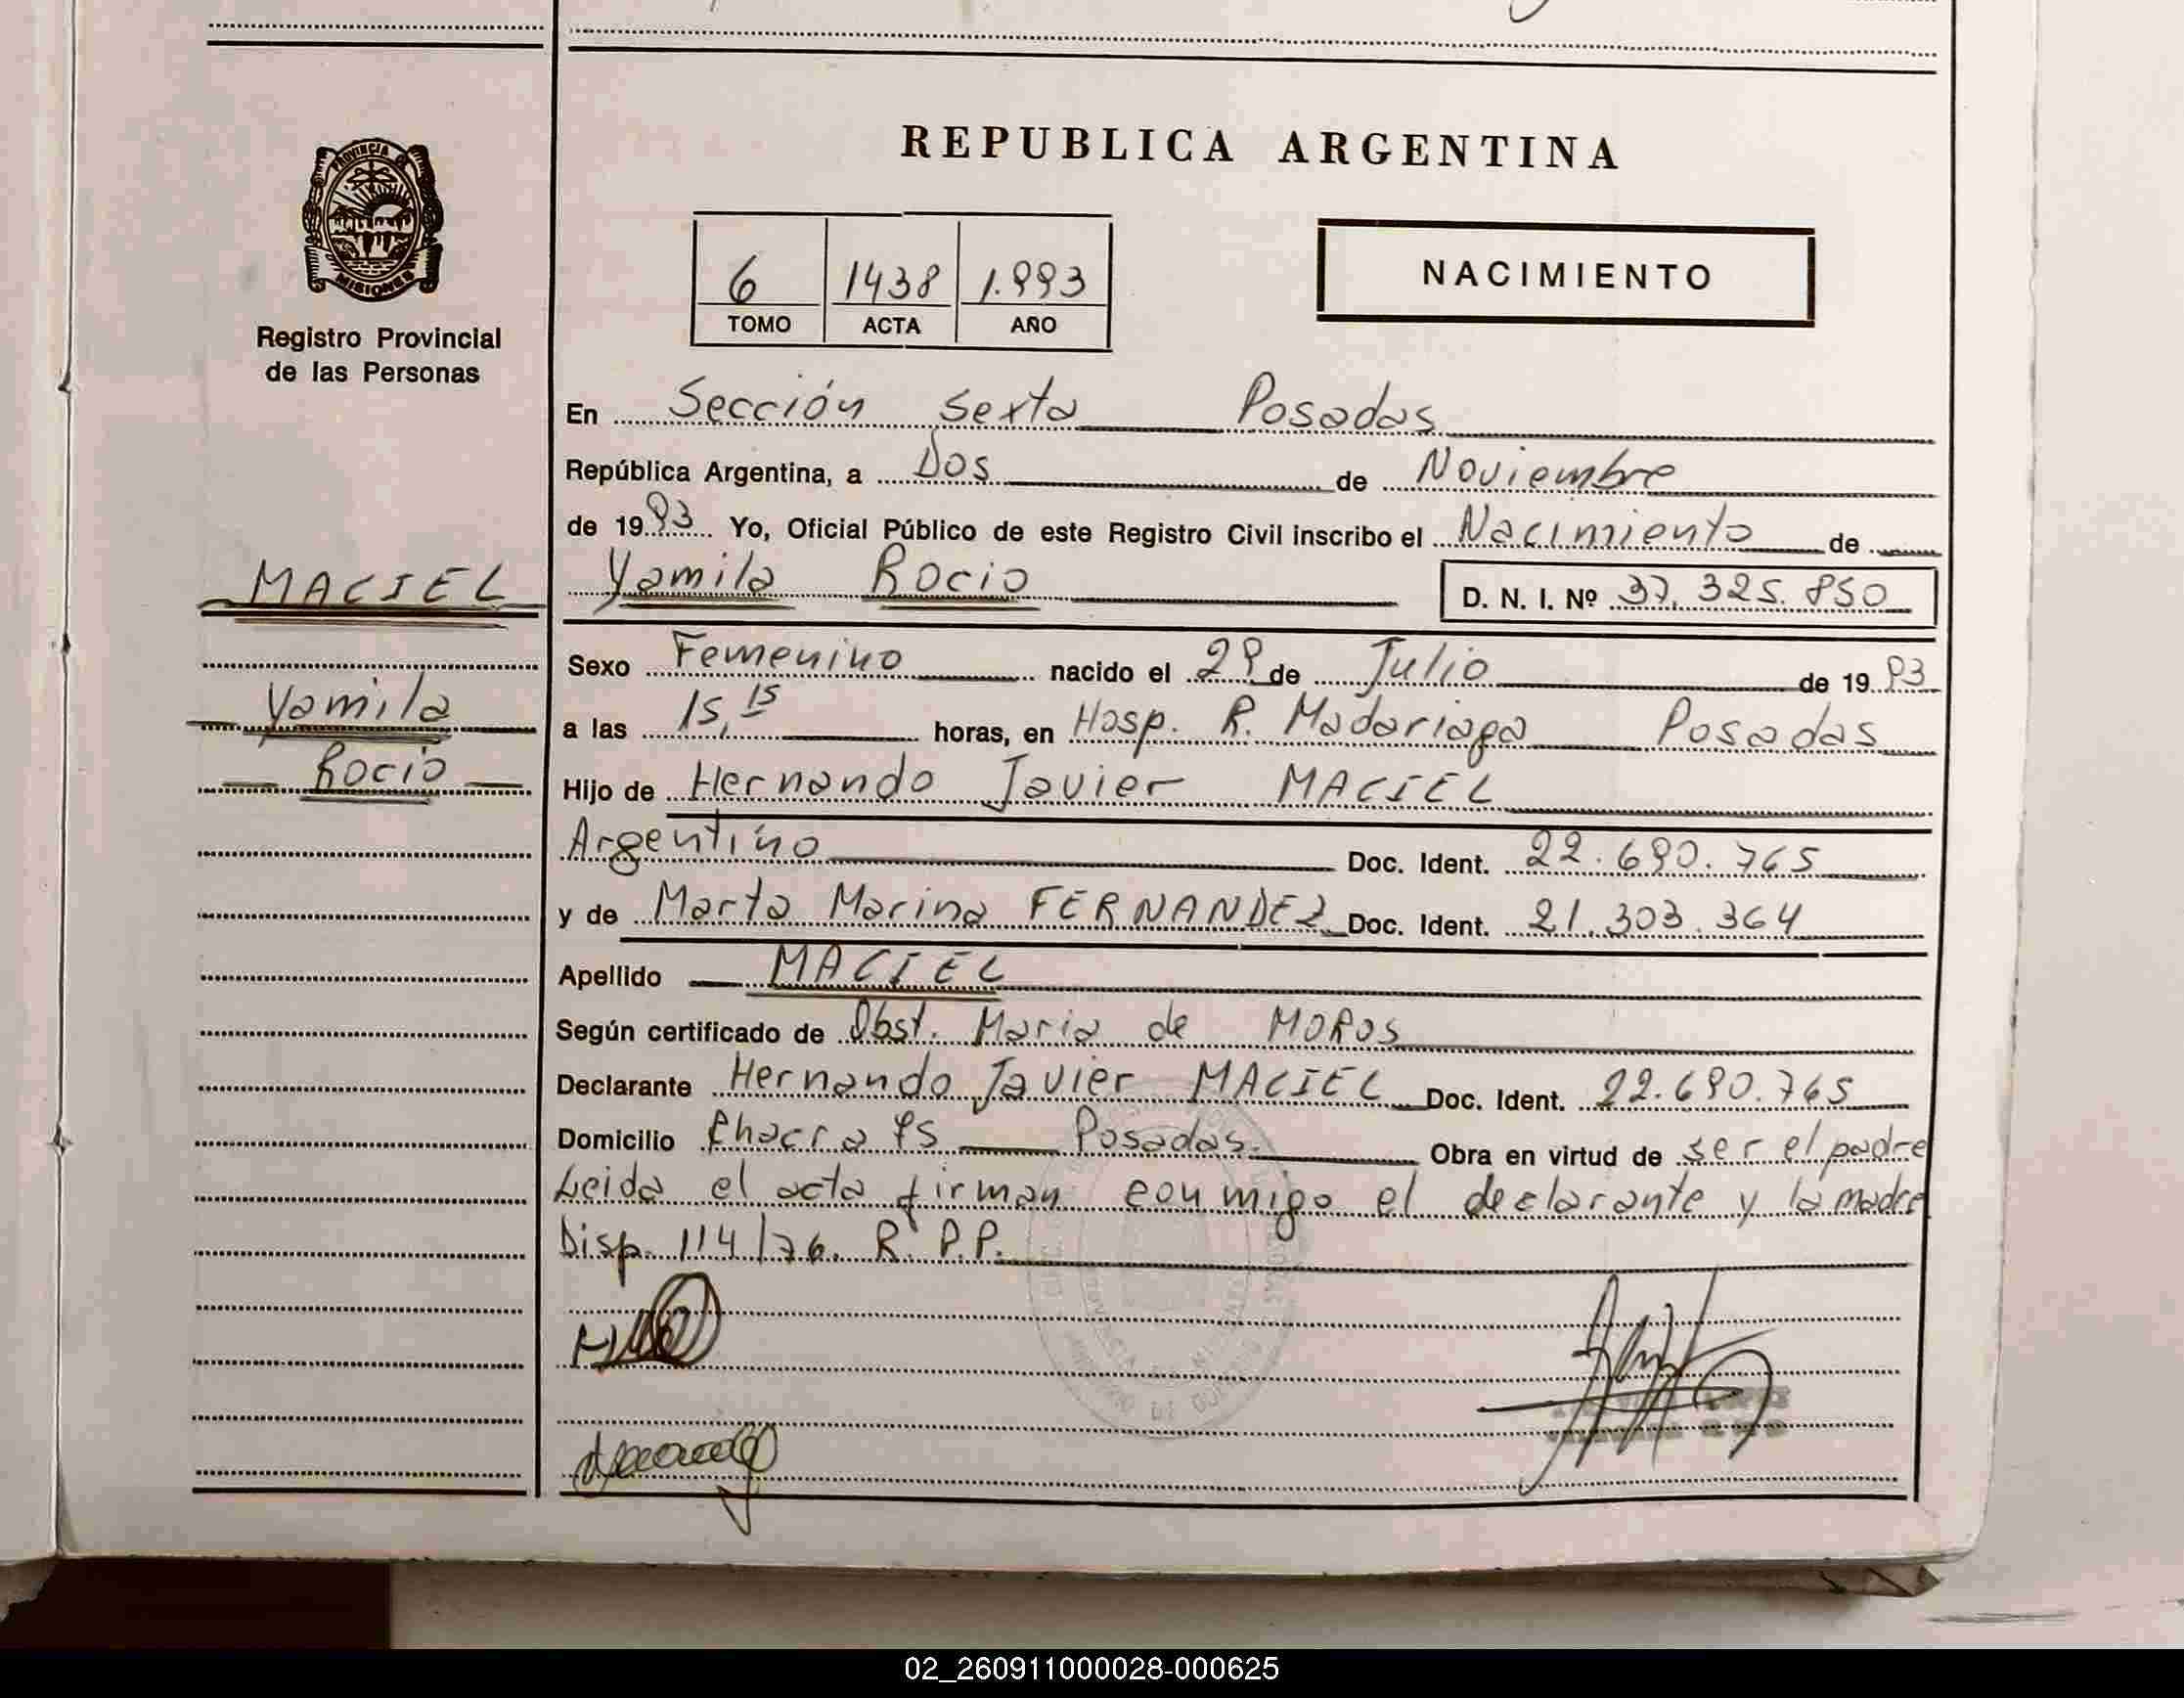 REPUBLICA ARGENTINA
PROVINCIA DE
MISIONES
Registro Provincial
de las Personas
6 1438 1.993
TOMO ACTA AÑO
NACIMIENTO
En Sección Sexta Posadas
República Argentina, a Dos de Noviembre
de 1993 Yo, Oficial Público de este Registro Civil inscribo el Nacimiento de
MACIEL
Yamila Rocio D. N. I. Nº 37.325.850
Sexo Femenino nacido el 29 de Julio de 1993
Yamila
a las 15,15 horas, en Hosp. R. Madariaga Posadas
Rocio
Hijo de Hernando Javier MACIEL
Argentino Doc. Ident. 22.690.765
y de Marta Marina FERNANDEZ Doc. Ident. 21.303.364
Apellido MACIEL
Según certificado de Obst. Maria de MOROS
Declarante Hernando Javier MACIEL Doc. Ident. 22.690.765
Domicilio Chacra 95 Posadas. Obra en virtud de ser el padre
Leida el acta firman conmigo el declarante y la madre
Disp. 114/76. R. P.P.
02_260911000028-000625